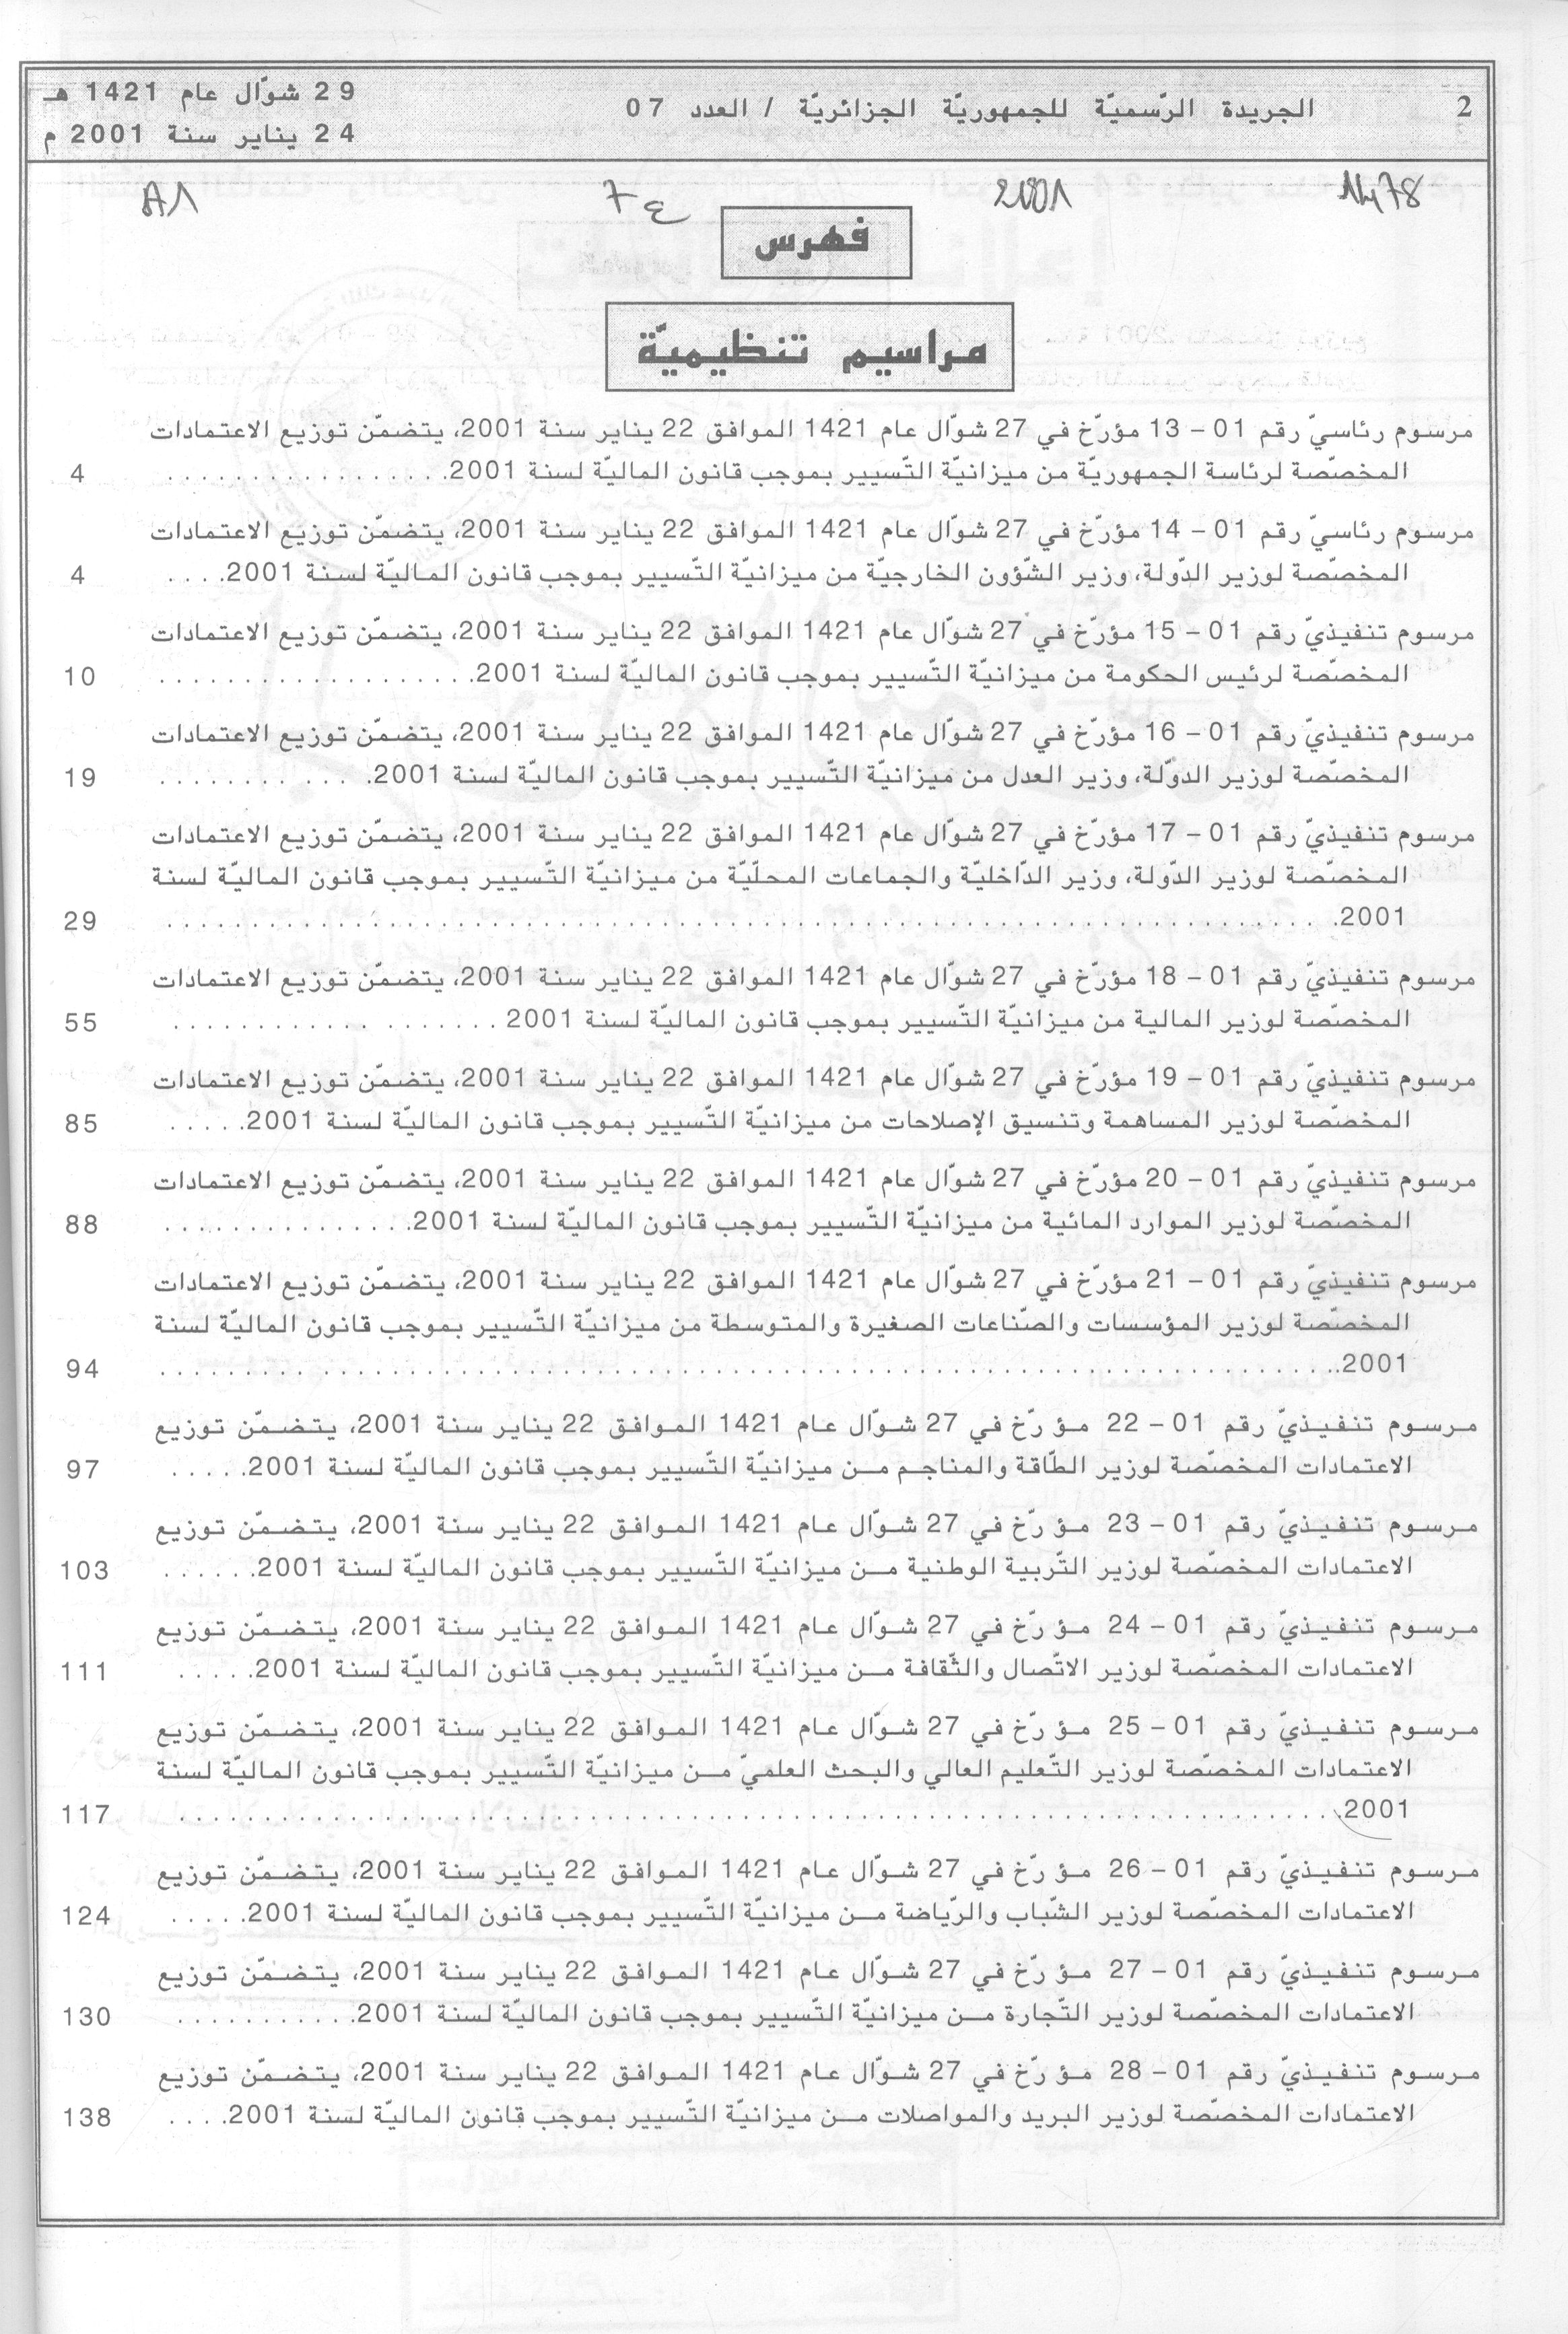 2
الجريدة الرّسميّة للجمهوريّة الجزائريّة / العدد 07
29 شوّال عام 1421 هـ
24 يناير سنة 2001 م
1478
2001
ع 7
A1
فهرس
مراسيم تنظيميّة
مرسوم رئاسيّ رقم 01 – 13 مؤرّخ في 27 شوّال عام 1421 الموافق 22 يناير سنة 2001، يتضمّن توزيع الاعتمادات
المخصّصة لرئاسة الجمهوريّة من ميزانيّة التّسيير بموجب قانون الماليّة لسنة 2001. . . . . . . . . . . . . . . . . 4
مرسوم رئاسيّ رقم 01 – 14 مؤرّخ في 27 شوّال عام 1421 الموافق 22 يناير سنة 2001، يتضمّن توزيع الاعتمادات
المخصّصة لوزير الدّولة، وزير الشّؤون الخارجيّة من ميزانيّة التّسيير بموجب قانون الماليّة لسنة 2001. . . . 4
مرسوم تنفيذيّ رقم 01 – 15 مؤرّخ في 27 شوّال عام 1421 الموافق 22 يناير سنة 2001، يتضمّن توزيع الاعتمادات
المخصّصة لرئيس الحكومة من ميزانيّة التّسيير بموجب قانون الماليّة لسنة 2001. . . . . . . . . . . . . . . . . . . 10
مرسوم تنفيذيّ رقم 01 – 16 مؤرّخ في 27 شوّال عام 1421 الموافق 22 يناير سنة 2001، يتضمّن توزيع الاعتمادات
المخصّصة لوزير الدوّلة، وزير العدل من ميزانيّة التّسيير بموجب قانون الماليّة لسنة 2001. . . . . . . . . . . 19
مرسوم تنفيذيّ رقم 01 – 17 مؤرّخ في 27 شوّال عام 1421 الموافق 22 يناير سنة 2001، يتضمّن توزيع الاعتمادات
المخصّصة لوزير الدّولة، وزير الدّاخليّة والجماعات المحلّيّة من ميزانيّة التّسيير بموجب قانون الماليّة لسنة
2001. . . . . . . . . . . . . . . . . . . . . . . . . . . . . . . . . . . . . . . . 29
مرسوم تنفيذيّ رقم 01 – 18 مؤرّخ في 27 شوّال عام 1421 الموافق 22 يناير سنة 2001، يتضمّن توزيع الاعتمادات
المخصّصة لوزير المالية من ميزانيّة التّسيير بموجب قانون الماليّة لسنة 2001 . . . . . . . . . . . . . . . . . . 55
مرسوم تنفيذيّ رقم 01 – 19 مؤرّخ في 27 شوّال عام 1421 الموافق 22 يناير سنة 2001، يتضمّن توزيع الاعتمادات
المخصّصة لوزير المساهمة وتنسيق الإصلاحات من ميزانيّة التّسيير بموجب قانون الماليّة لسنة 2001. . . . . 85
مرسوم تنفيذيّ رقم 01 – 20 مؤرّخ في 27 شوّال عام 1421 الموافق 22 يناير سنة 2001، يتضمّن توزيع الاعتمادات
المخصّصة لوزير الموارد المائية من ميزانيّة التّسيير بموجب قانون الماليّة لسنة 2001. . . . . . . . . . . . . . . 88
مرسوم تنفيذيّ رقم 01 – 21 مؤرّخ في 27 شوّال عام 1421 الموافق 22 يناير سنة 2001، يتضمّن توزيع الاعتمادات
المخصّصة لوزير المؤسسات والصّناعات الصغيرة والمتوسطة من ميزانيّة التّسيير بموجب قانون الماليّة لسنة
2001. . . . . . . . . . . . . . . . . . . . . . . . . . . . . . . . . . . . . . . . 94
مرسوم تنفيذيّ رقم 01 – 22 مؤرّخ في 27 شوّال عام 1421 الموافق 22 يناير سنة 2001، يتضمّن توزيع
الاعتمادات المخصّصة لوزير الطّاقة والمناجم من ميزانيّة التّسيير بموجب قانون الماليّة لسنة 2001. . . . . 97
مرسوم تنفيذيّ رقم 01 – 23 مؤرّخ في 27 شوّال عام 1421 الموافق 22 يناير سنة 2001، يتضمّن توزيع
الاعتمادات المخصّصة لوزير التّربية الوطنية من ميزانيّة التّسيير بموجب قانون الماليّة لسنة 2001. . . . . . 103
مرسوم تنفيذيّ رقم 01 – 24 مؤرّخ في 27 شوّال عام 1421 الموافق 22 يناير سنة 2001، يتضمّن توزيع
الاعتمادات المخصّصة لوزير الاتّصال والثّقافة من ميزانيّة التّسيير بموجب قانون الماليّة لسنة 2001. . . . . 111
مرسوم تنفيذيّ رقم 01 – 25 مؤرّخ في 27 شوّال عام 1421 الموافق 22 يناير سنة 2001، يتضمّن توزيع
الاعتمادات المخصّصة لوزير التّعليم العالي والبحث العلميّ من ميزانيّة التّسيير بموجب قانون الماليّة لسنة
2001. . . . . . . . . . . . . . . . . . . . . . . . . . . . . . . . . . . . . . . . 117
مرسوم تنفيذيّ رقم 01 – 26 مؤرّخ في 27 شوّال عام 1421 الموافق 22 يناير سنة 2001، يتضمّن توزيع
الاعتمادات المخصّصة لوزير الشّباب والرّياضة من ميزانيّة التّسيير بموجب قانون الماليّة لسنة 2001. . . . . 124
مرسوم تنفيذيّ رقم 01 – 27 مؤرّخ في 27 شوّال عام 1421 الموافق 22 يناير سنة 2001، يتضمّن توزيع
الاعتمادات المخصّصة لوزير التّجارة من ميزانيّة التّسيير بموجب قانون الماليّة لسنة 2001. . . . . . . . . . . 130
مرسوم تنفيذيّ رقم 01 – 28 مؤرّخ في 27 شوّال عام 1421 الموافق 22 يناير سنة 2001، يتضمّن توزيع
الاعتمادات المخصّصة لوزير البريد والمواصلات من ميزانيّة التّسيير بموجب قانون الماليّة لسنة 2001. . . . 138